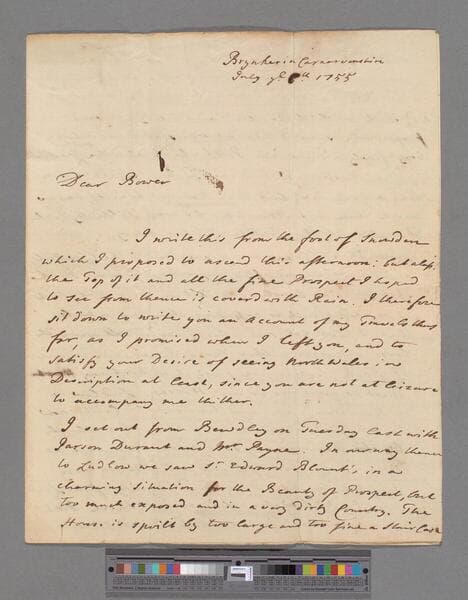 Brynker in Carnarvonshire
July ye 6th 1755
Dear Bower
I write this from the foot of Snowdon
which I proposed to ascend this afternoon: but alas,
the Top of it and all the fine Prospect I hoped
to see from thence is coverd with Rain. I therefore
sit down to write you an Account of my Travels thus
far, as I promised when I left you, and to
satisfy your Desire of seeing North Wales in
Description at least, since you are not at leizure
to accompany me thither.
I set out from Bewdley on Tuesday last with
Parson Durant and Mr Payne. In our way thence
to Ludlow we saw Sr Edward Blount's, in a
charming situation for the Beauty of Prospect, but
too much exposed and in a very dirty Country. The
House is spoilt by too large and too fine a Stair Case